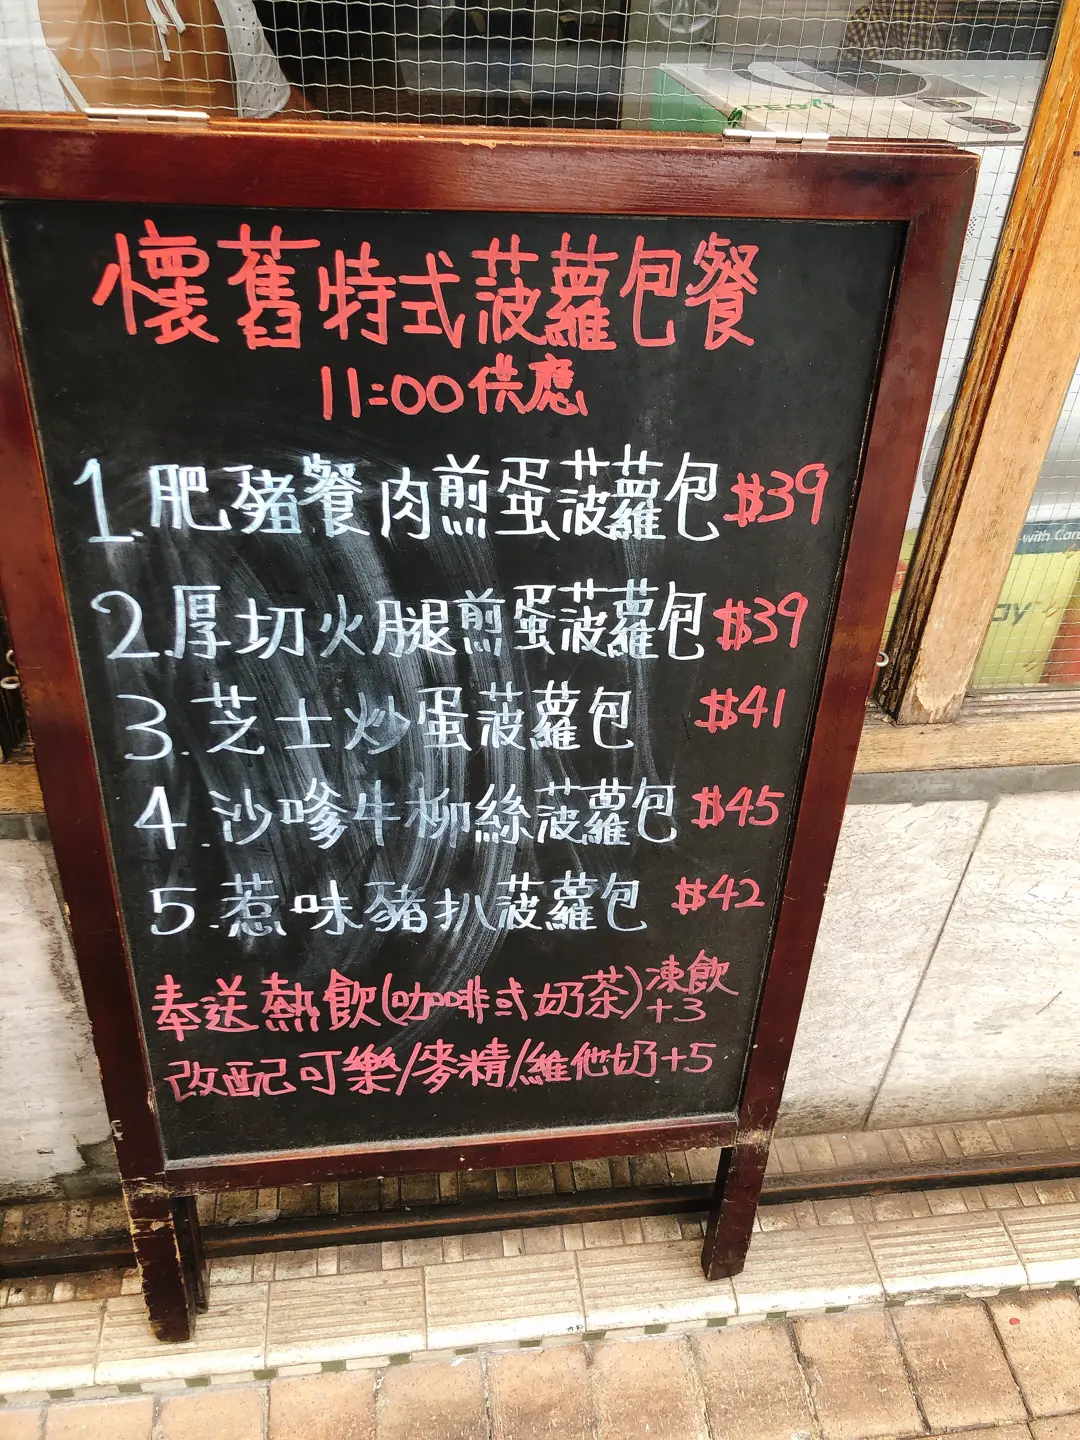 懷舊特式菠蘿包餐
11:00供應
1.肥豬餐肉煎蛋菠蘿包$39
2.厚切火腿煎蛋菠蘿包$39
3.芝士炒蛋菠蘿包 $41
4.沙嗲牛柳絲菠蘿包 $45
5.惹味豬扒菠蘿包 $42
奉送熱飲(咖啡或奶茶)凍飲+3
改配可樂/麥精/維他奶+5
-with Care